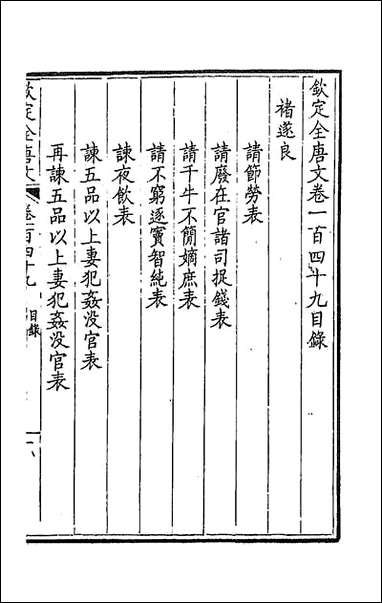 欽定全唐文卷一百四十九目錄
褚遂良
請節勞表
請廢在官諸司捉錢表
請千牛不簡嫡庶表
請不窮逐竇智純表
諫夜飲表
諫五品以上妻犯姦没官表
再諫五品以上妻犯姦没官表
欽定全唐文
卷一百四十九
目錄
一